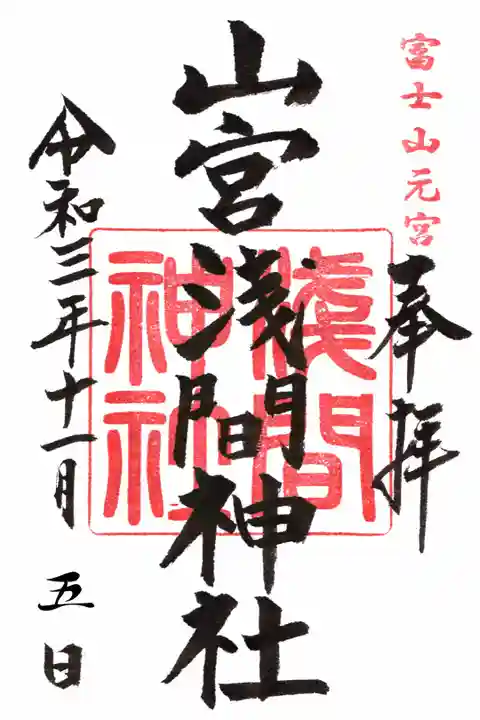 富士山元宮
奉拝
山宮浅間神社
淺間
神社
令和三年十一月
五日